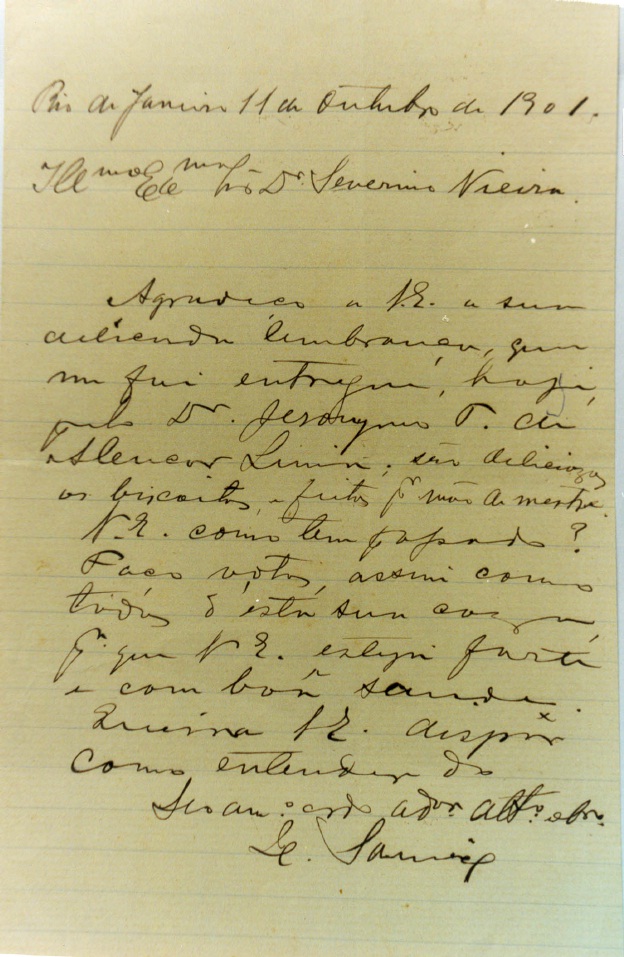 Rio de Janeiro 11 de Outubro de 1901.
Illmo Exmo Snr Dr. Severino Vieira.
Agradeço a V.E. a sua
delicada lembrança, que
me foi entregue, hoje,
pelo Dr. Jeronymo T. de
Alencar Lima; são deliciozos
os biscoitos, e feitos pr mão de mestre.
V.E. como tem passado?
Faço vótos, assim como
todos d'esta sua caza,
pa. que V E. esteja forte
e com bôa saude.
Queira V E. dispôr
como entender do
Seo amo. crdo ador. atto. obro.